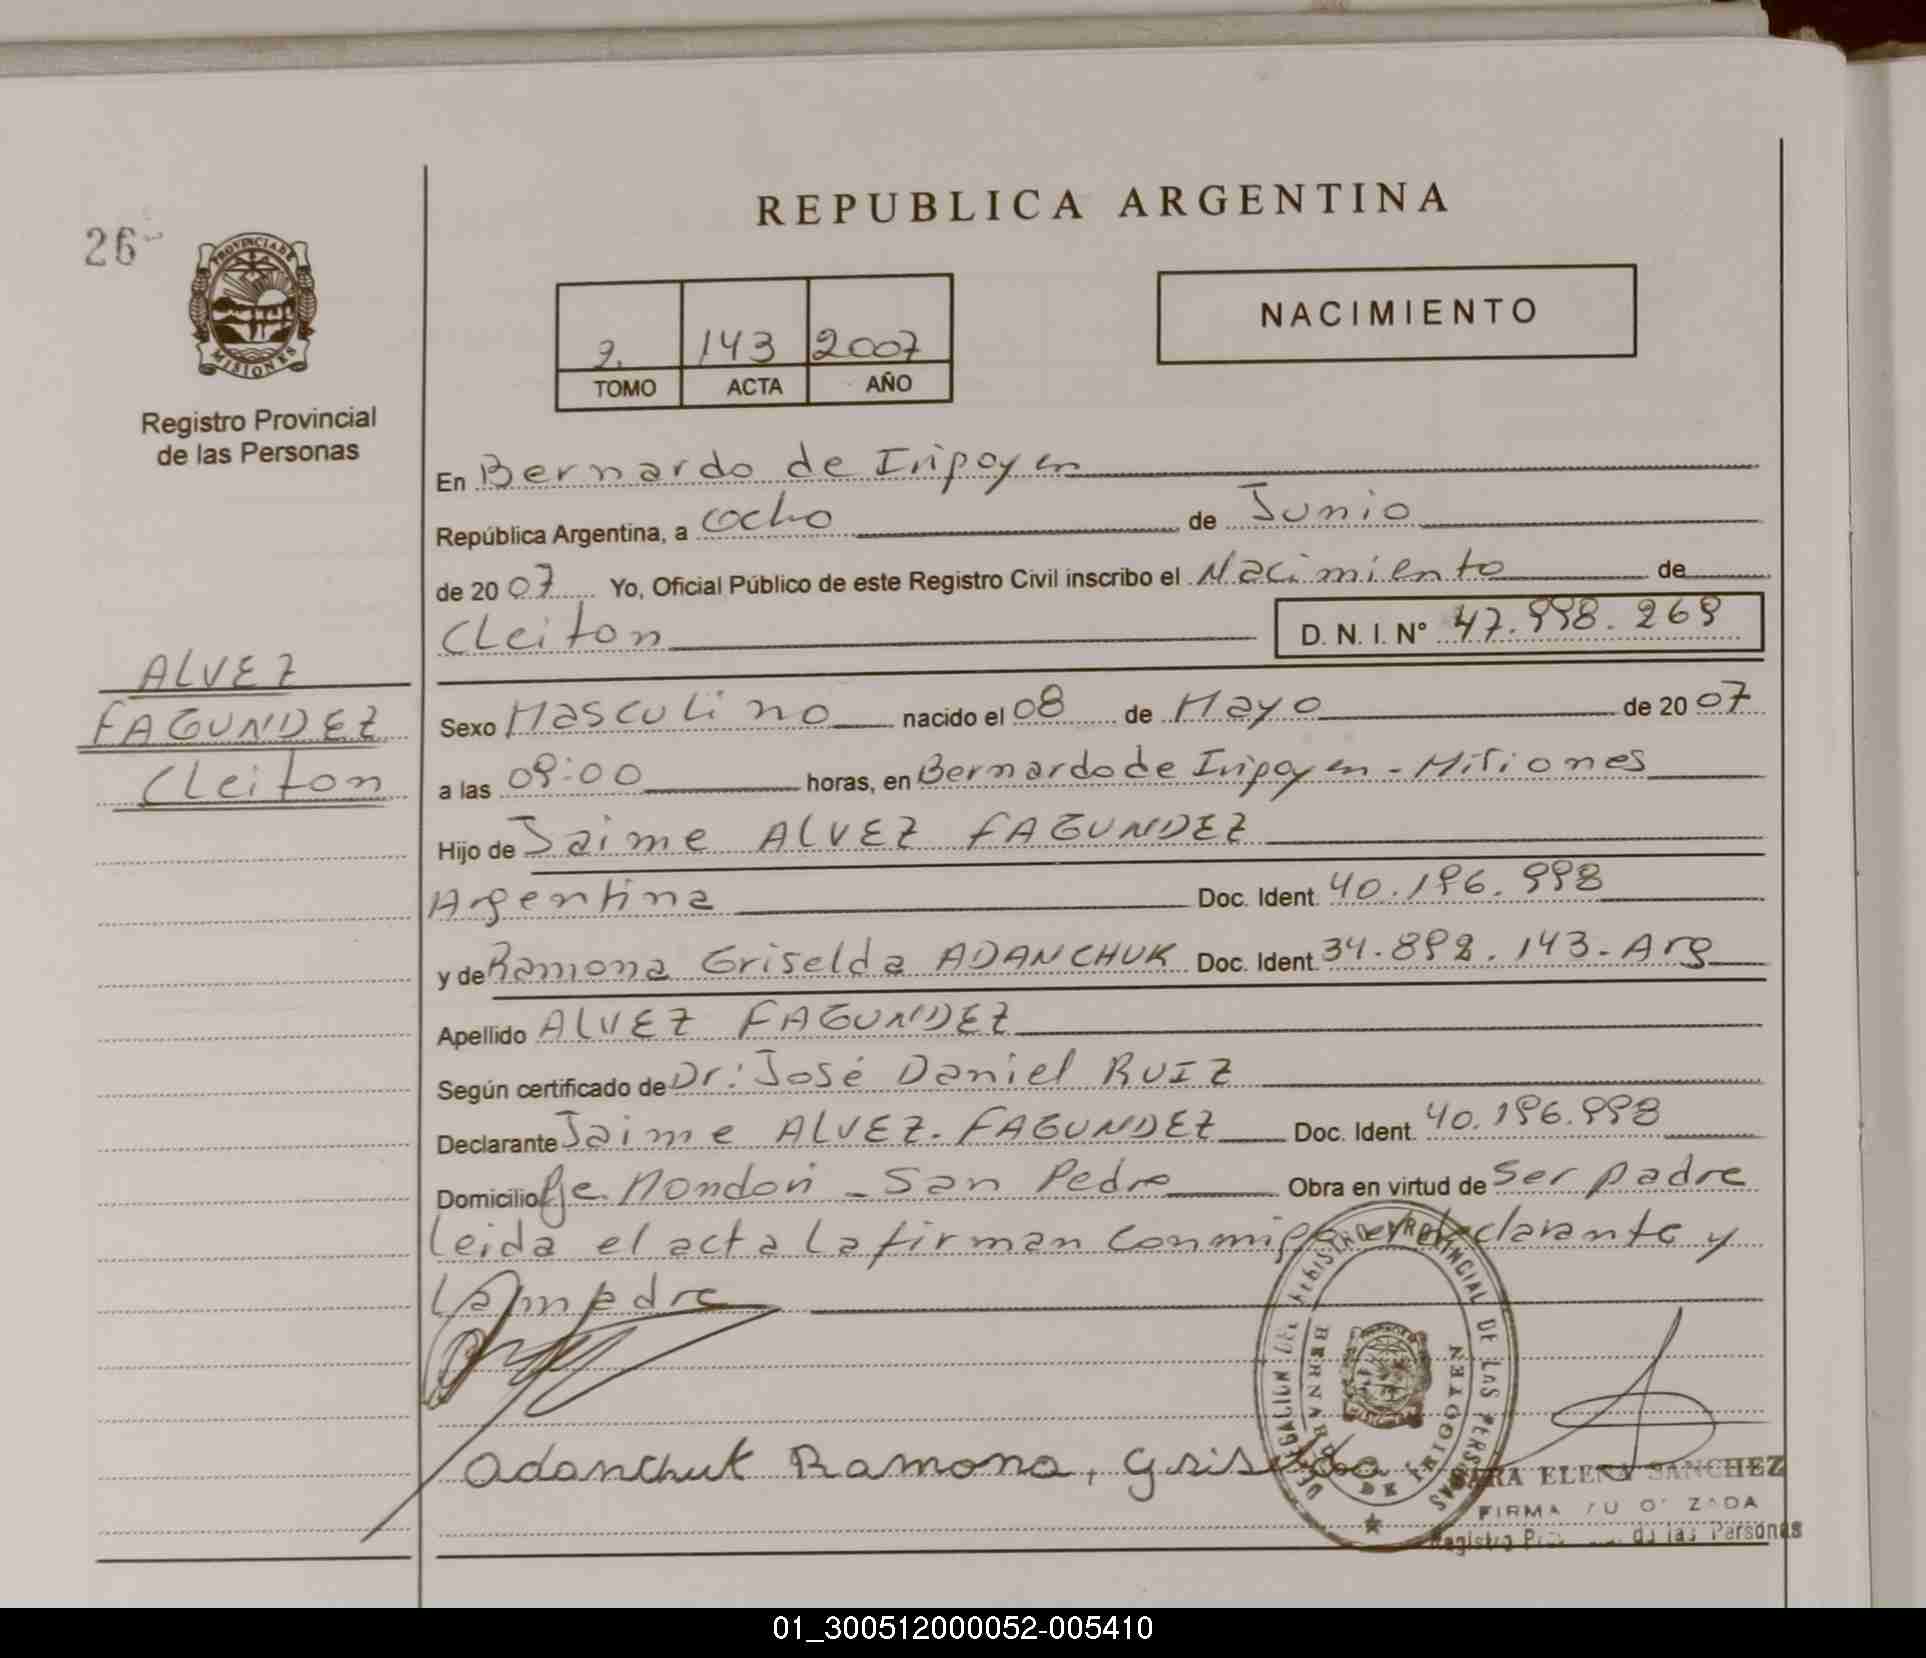 REPUBLICA ARGENTINA
26
PROVINCIA DE
MISIONES
Registro Provincial
de las Personas
2. 143 2007
TOMO ACTA AÑO
NACIMIENTO
En Bernardo de Iripoyen
República Argentina, a ocho de Junio
de 2007 Yo, Oficial Público de este Registro Civil inscribo el Nacimiento de
Cleiton D. N. I. N° 47.998.269
ALVEZ
FAGUNDEZ
Cleiton
Sexo Masculino nacido el 08 de Mayo de 2007
a las 09:00 horas, en Bernardo de Iripoyen - Misiones
Hijo de Jaime ALVEZ FAGUNDEZ
Argentina Doc. Ident. 40.196.998
y de Ramona Griselda ADANCHUK Doc. Ident. 34.892.143 - Arg
Apellido ALVEZ FAGUNDEZ
Según certificado de Dr: José Daniel RUIZ
Declarante Jaime ALVEZ. FAGUNDEZ Doc. Ident. 40.196.998
Domicilio Pje. Mondori - San Pedro Obra en virtud de Ser padre
Leida el acta la firman conmigo el declarante y
la madre
Adanchuk Ramona, Griselda
DELEGACION DEL REGISTRO PROVINCIAL DE LAS PERSONAS
BERNARDO DE IRIGOYEN
SARA ELENA SANCHEZ
FIRMA
Registro de las Personas
01_300512000052-005410